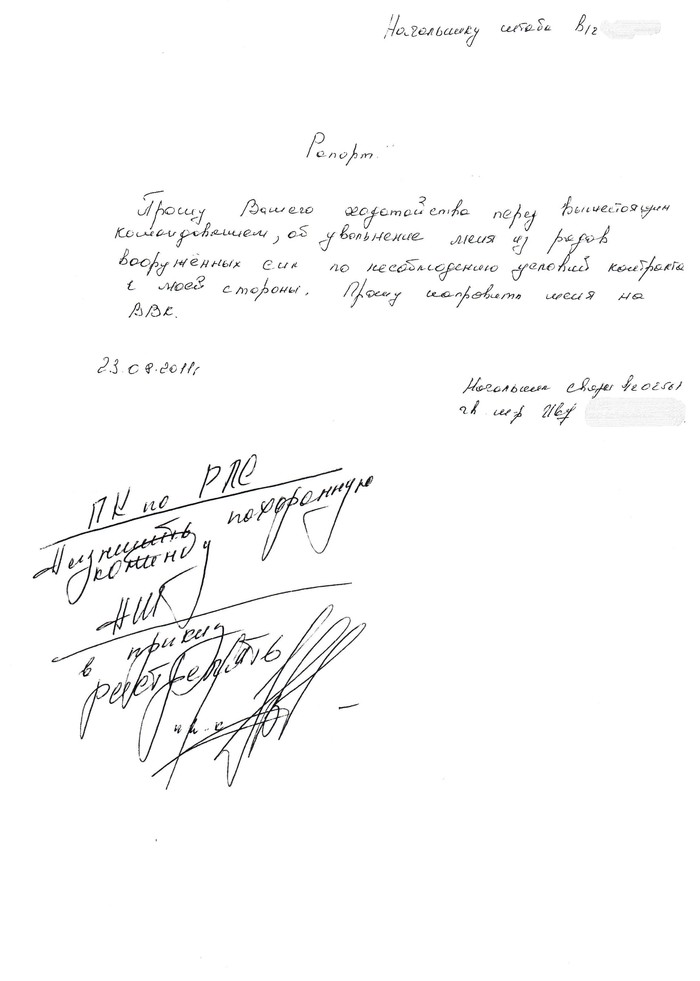 Начальнику штаба в/ч
Рапорт.
Прошу Вашего ходотайства перед вышестоящим
командованием, об увольнение меня из рядов
вооружённых сил по несоблюдению условий контракта
с моей стороны. Прошу направить меня на
ВВК.
23.08.2011г
Начальник связи
ПК по РЛС
Назначить похоронную
команду
НШ
в приказ
расстрелять